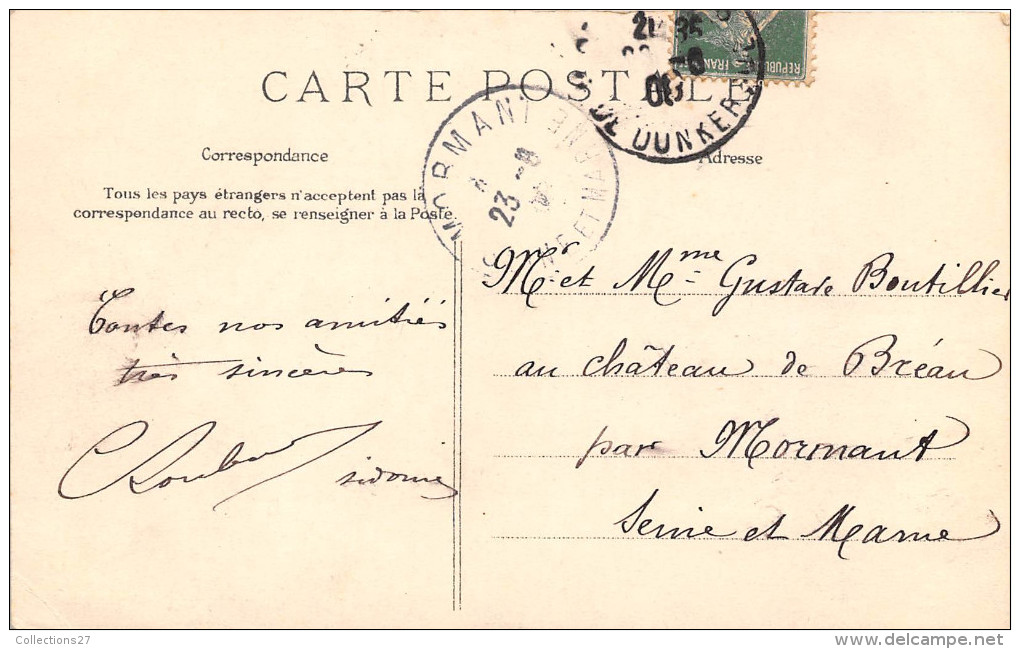 CARTE POSTALE
Correspondance
Tous les pays étrangers n'acceptent pas la
correspondance au recto, se renseigner à la Poste.
Toutes nos amitiés
très sincères
Sidonie
REPUBLIQUE FRANÇ
DE DUNKERQUE
MORMANT
23 -8
SEINE ET MARNE
Adresse
Mr et Mme Gustave Boutillier
au château de Bréau
par Mormant
Seine et Marne
Collections27
delcampe.net